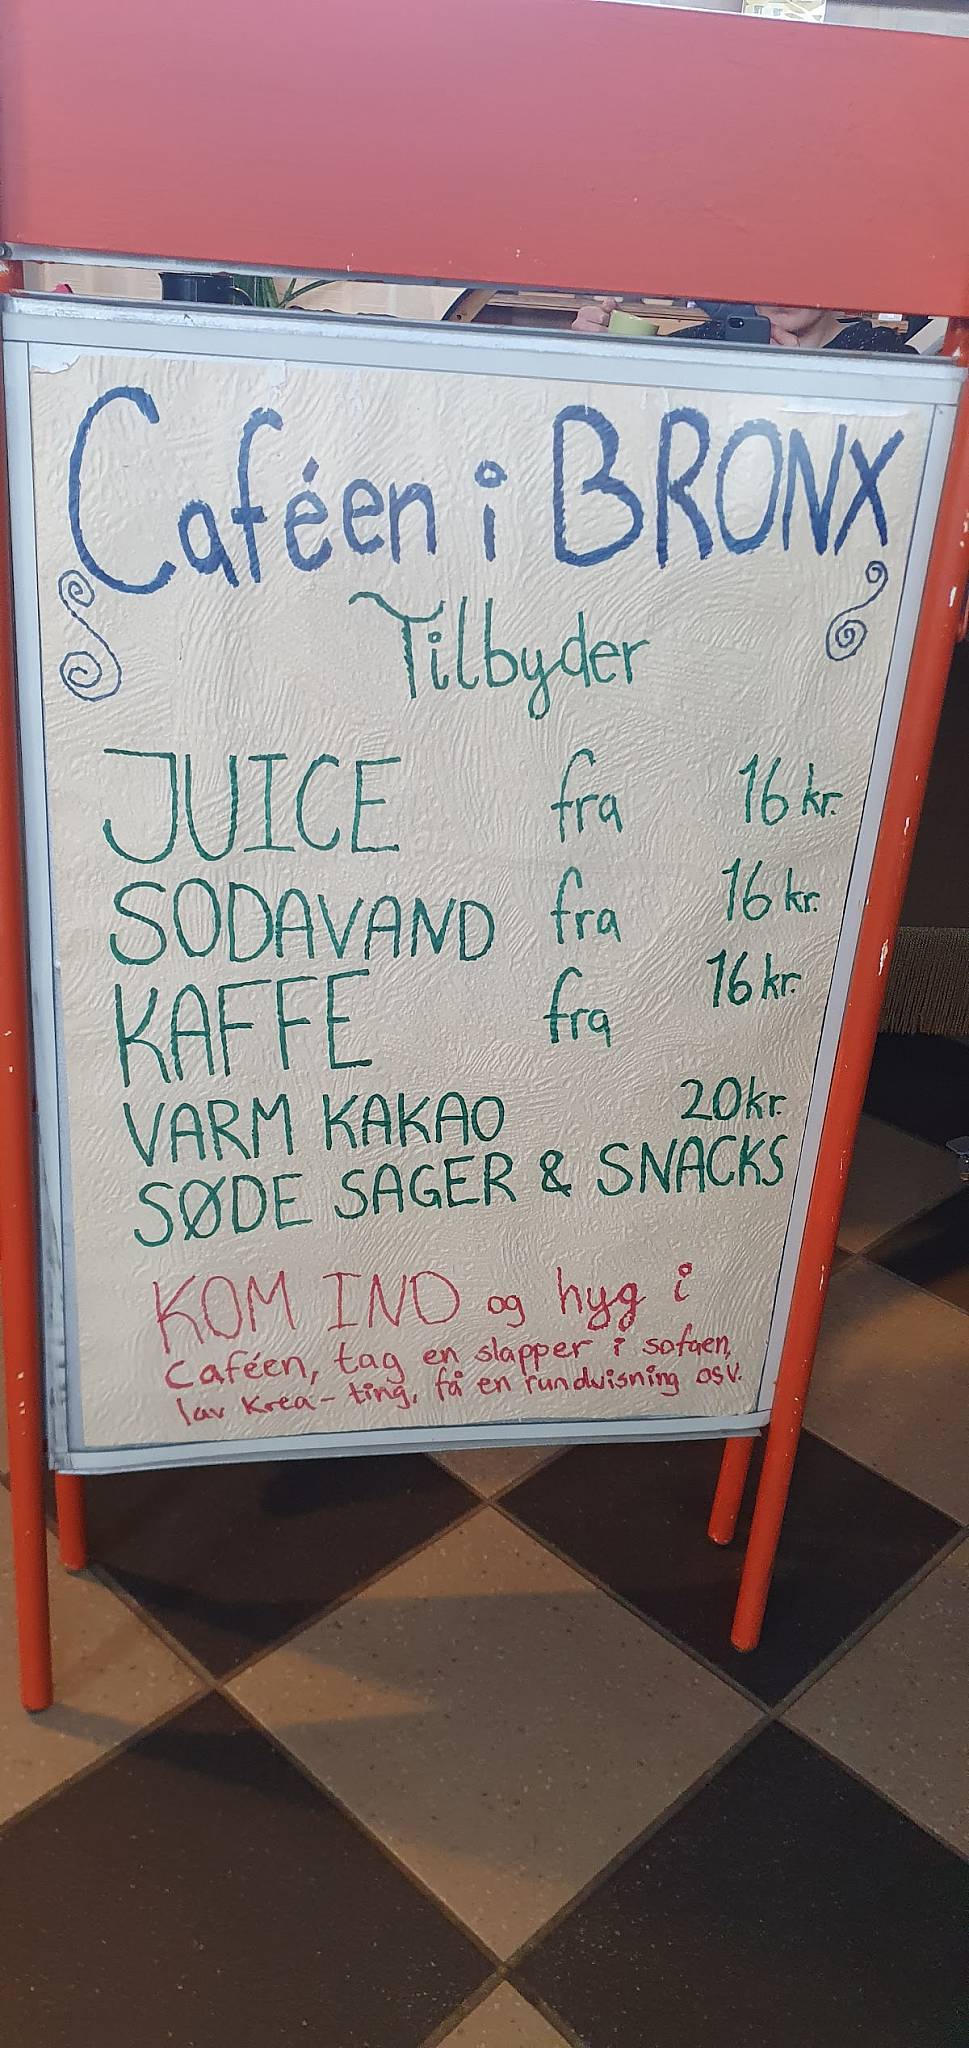 Caféen i BRONX
Tilbyder
JUICE fra 16 kr.
SODAVAND fra 16 kr.
KAFFE fra 16 kr.
VARM KAKAO 20 kr.
SØDE SAGER & SNACKS
KOM IND og hyg i
Caféen, tag en slapper i sofaen,
lav Krea-ting, få en rundvisning osv.